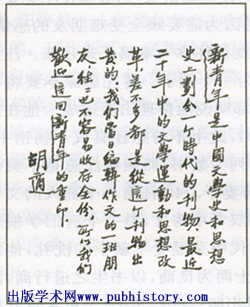 新青年是中國文學史和思想
史上劃分一个時代的刊物,最近
二十年中的文學運動和思想改
革,差不多都是從這个刊物出
發的。我們當日編輯作文的一班朋
友,往往也不容易收存全份,所以我們
歡迎這回新青年的重印。
胡適
出版学术网.www.pubhistory.com